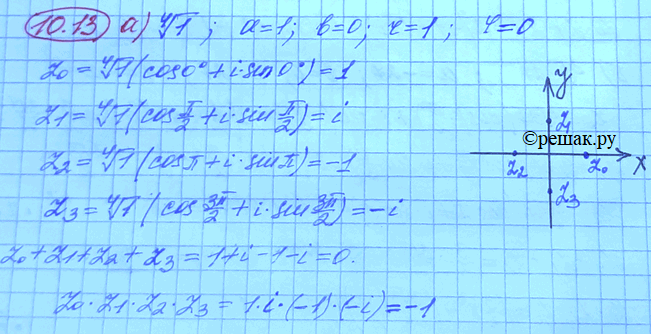 10.13 а) ⁴√1 ; a=1; b=0; r=1; φ=0
z₀ = ⁴√1 (cos0° + i·sin0°) = 1
z₁ = ⁴√1 (cos π/2 + i·sin π/2) = i
z₂ = ⁴√1 (cosπ + i·sinπ) = -1
z₃ = ⁴√1 (cos 3π/2 + i·sin 3π/2) = -i
z₀ + z₁ + z₂ + z₃ = 1+i-1-i=0.
z₀ · z₁ · z₂ · z₃ = 1·i·(-1)·(-i) = -1
y
z₁
©решак.ру
z₂ z₀ x
z₃